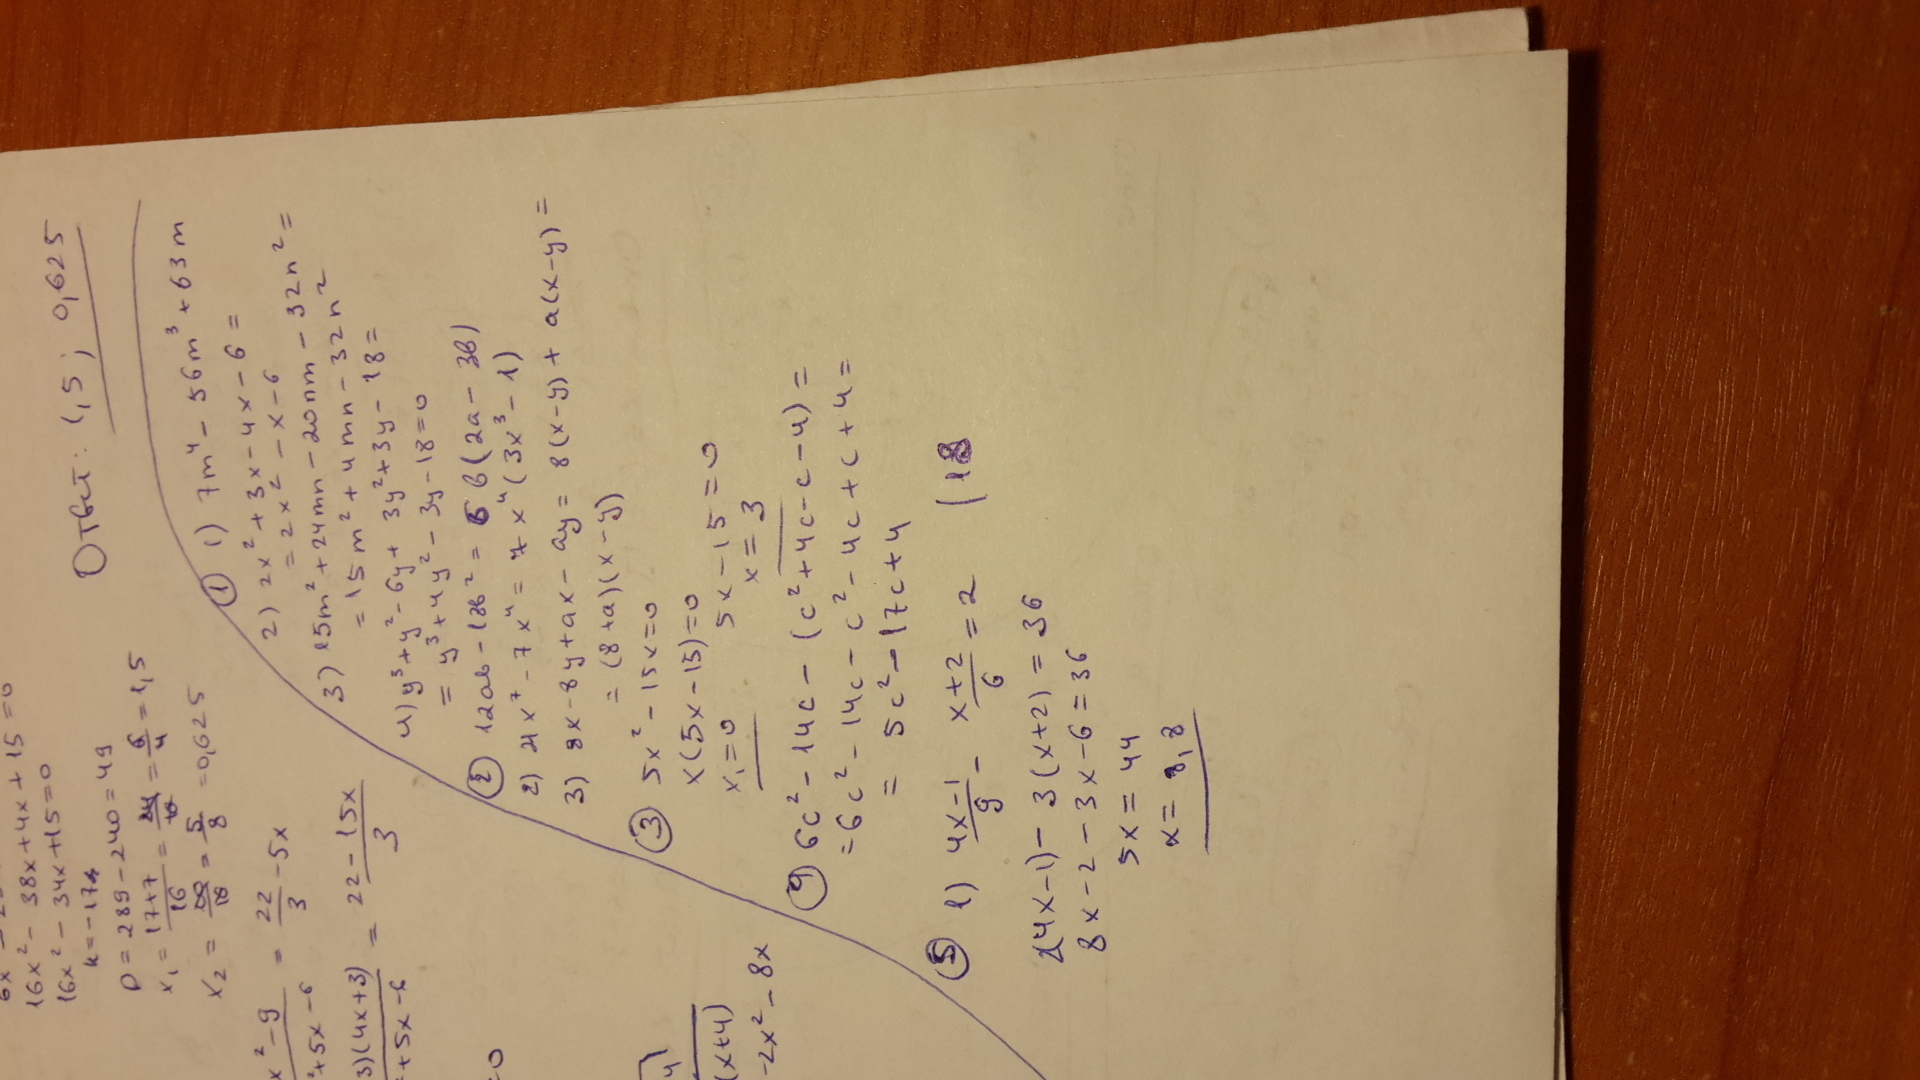 16x² - 38x + 4x + 15 = 0
16x² - 34x + 15 = 0
k = -17
D = 289 - 240 = 49
x₁ = 17+7/16 = 24/16 = 6/4 = 1,5
x₂ = 10/16 = 5/8 = 0,625
Ответ: 1,5 ; 0,625
x² - 9 / ²+5x-6 = 22/3 - 5x
3)(4x+3) / +5x-6 = 22-15x / 3
=0
(x+4)
-2x² - 8x
① 1) 7m⁴ - 56m³ + 63m
2) 2x² + 3x - 4x - 6 =
= 2x² - x - 6
3) 15m² + 24mn - 20nm - 32n² =
= 15m² + 4mn - 32n²
4) y³ + y² - 6y + 3y² + 3y - 18 =
= y³ + 4y² - 3y - 18 = 0
② 12ab - 18b² = 6b(2a - 3b)
2) 21x⁷ - 7x⁴ = 7x⁴(3x³ - 1)
3) 8x - 8y + ax - ay = 8(x-y) + a(x-y) =
= (8+a)(x-y)
③ 5x² - 15x = 0
x(5x-15) = 0
x₁ = 0 5x - 15 = 0
x = 3
④ 6c² - 14c - (c² + 4c - c - 4) =
= 6c² - 14c - c² - 4c + c + 4 =
= 5c² - 17c + 4
⑤ 1) 4x-1/9 - x+2/6 = 2 |18
2(4x-1) - 3(x+2) = 36
8x - 2 - 3x - 6 = 36
5x = 44
x = 8,8